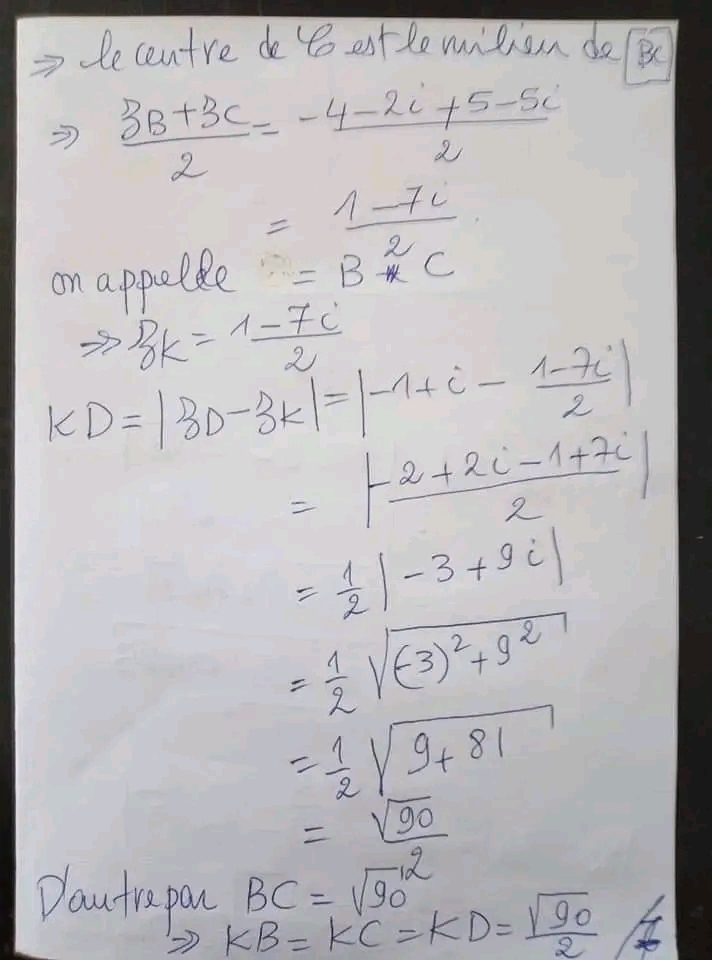 ⇒ le centre de C est le milieu de [BC]
⇒ (zB + zC)/2 = (-4 - 2i + 5 - 5i)/2
= (1 - 7i)/2
on appelle = B * C
⇒ zK = (1 - 7i)/2
KD = |zD - zK| = |-1 + i - (1 - 7i)/2|
= |(-2 + 2i - 1 + 7i)/2|
= 1/2 |-3 + 9i|
= 1/2 √((-3)² + 9²)
= 1/2 √(9 + 81)
= √90/2
D'autre par BC = √90
⇒ KB = KC = KD = √90/2